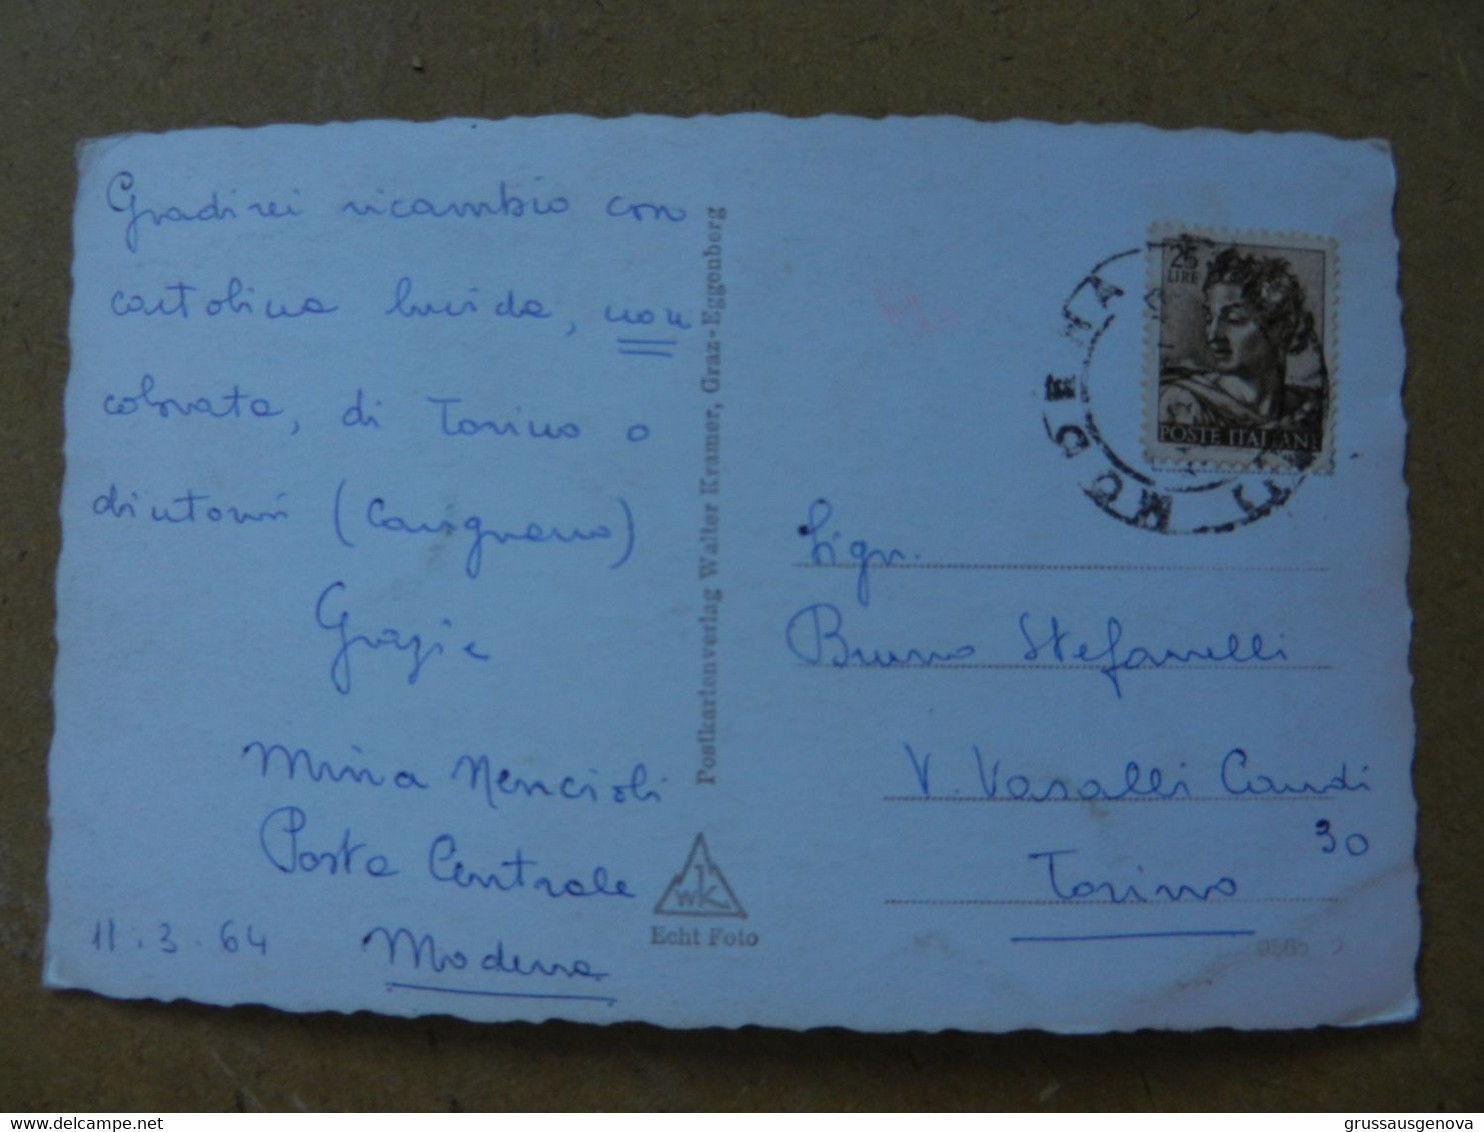 Gradirei ricambio con
cartolina lucida, non
colorata, di Torino o
dintorni (Carignano)
Grazie
Mina Nencioli
Posta Centrale
11.3.64 Modena
Postkartenverlag Walter Kramer, Graz-Eggenberg
WK
Echt Foto
25
LIRE
POSTE ITALIANE
MODENA
Sign.
Bruno Stefanelli
V. Vasalli Eandi
30
Torino
grussausgenova